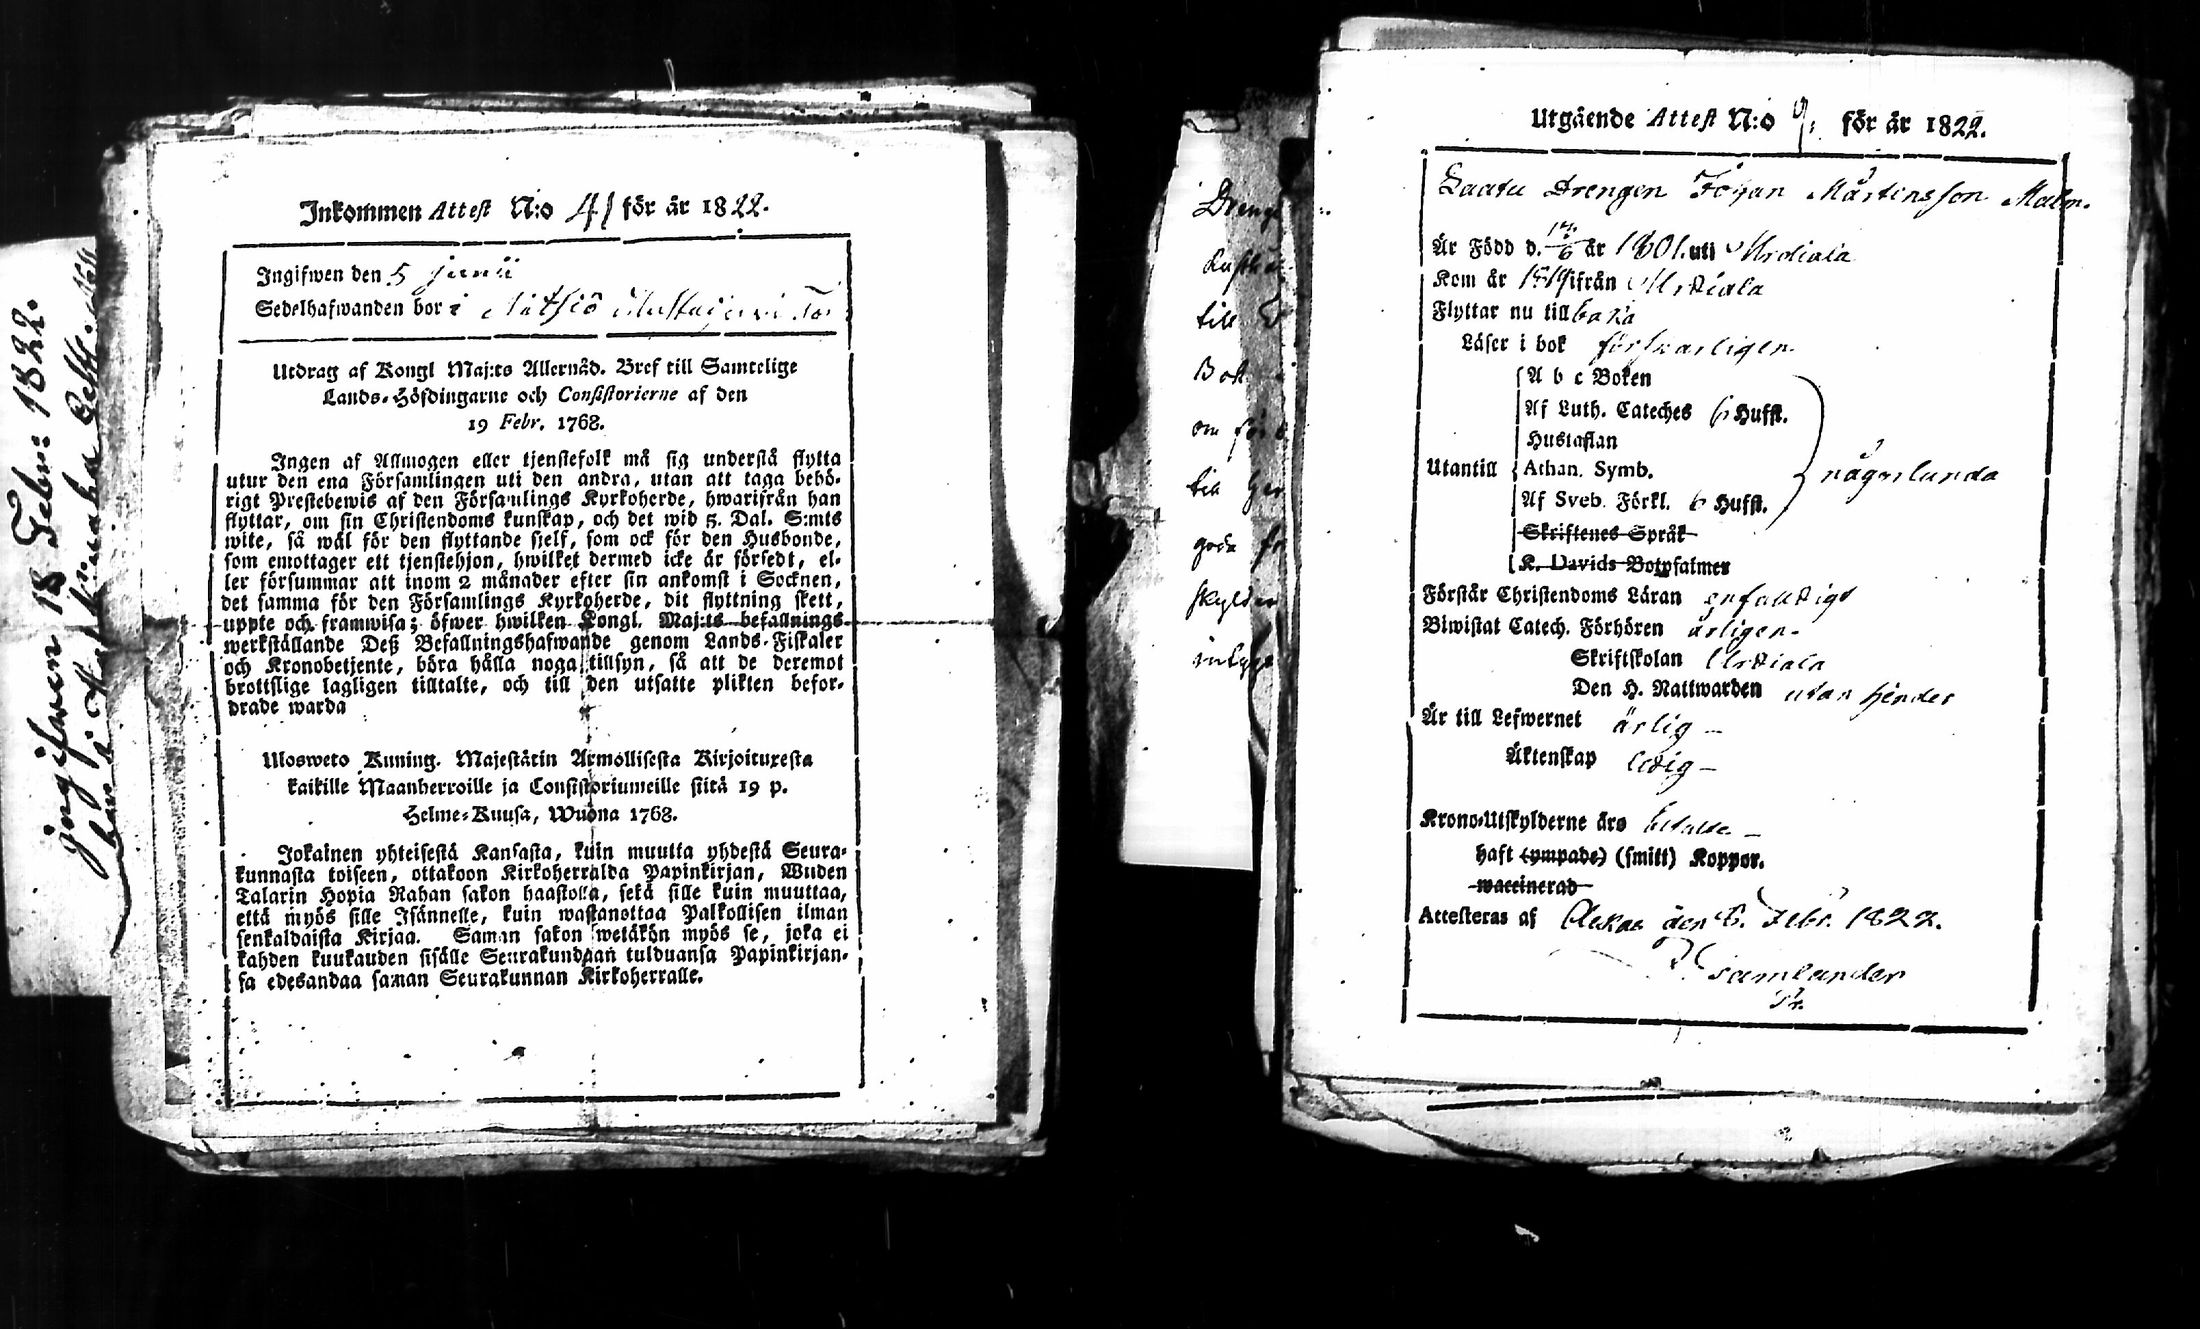 ingifwen 18 Febr: 1822.
bor i
Inkommen Attest N:o 41 för år 1822.
Ingifwen den 5 junii
Sedelhafwanden bor i
Utdrag af Kongl Maj:ts Allernåd. Bref till Samtelige
Lands-Höfdingarne och Consistorierne af den
19 Febr. 1768.
Ingen af Allmogen eller tjenstefolk må sig understå flytta
utur den ena Församlingen uti den andra, utan att taga behö-
rigt Prestebewis af den Församlings Kyrkoherde, hwarifrån han
flyttar, om sin Christendoms kunskap, och det wid 5. Dal. S:mts
wite, så wäl för den flyttande sielf, som ock för den Husbonde,
som emottager ett tjenstehjon, hwilket dermed icke är försedt, el-
ler försummar att inom 2 månader efter sin ankomst i Socknen,
det samma för den Församlings Kyrkoherde, dit flyttning skett,
uppte och framwisa; öfwer hwilken Kongl. Maj:ts befallnings
werkställande Deß Befallningshafwande genom Lands-Fiskaler
och Kronobetjente, böra hålla noga tillsyn, så att de deremot
brottslige lagligen tilltalte, och till den utsatte plikten befor-
drade warda
Ulosweto Kuning. Majestätin Armollisesta Kirjoituxesta
kaikille Maanherroille ja Consistoriumeille siitä 19 p.
Helme-Kuusa, Wuona 1768.
Jokainen yhteisestä Kansasta, kuin muutta yhdestä Seura-
kunnasta toiseen, ottakoon Kirkoherralda Papinkirjan, Wiiden
Talarin Hopia Rahan sakon haastolla, sekä sille kuin muuttaa,
että myös sille Isännelle, kuin wastanottaa Palkollisen ilman
senkaldaista Kirjaa. Saman sakon wetäkön myös se, joka ei
kahden kuukauden sisälle Seurakundaan tulduansa Papinkirjan-
sa edesandaa saman Seurakunnan Kirkoherralle.
Dreng
till
Bok
om
till
goda
skylder
intyg
Utgående Attest N:o 9. för år 1822.
Drengen Johan Mårtensson Malm.
Är Född d. år 1801. uti Urdiala
Kom år 1819 ifrån Urdiala
Flyttar nu tillbaka
Läser i bok försvarligen
Utantill
A b c Boken
Af Luth. Cateches 6 Hufst.
Hustaflan
Athan. Symb.
Af Sveb. Förkl. 6 Hufst.
Skriftenes Språk
K. Davids Botpsalmer
någorlunda
Förstår Christendoms Läran enfaldigt
Biwistat Catech. Förhören årligen
Skriftskolan Urdiala
Den H. Nattwarden utan hinder
Är till Lefwernet ärlig
Äktenskap ledig
Krono-Utskylderne äro betalte
haft (ympade) (smitt) Koppor.
waccinerad
Attesteras af den Febr. 1822.